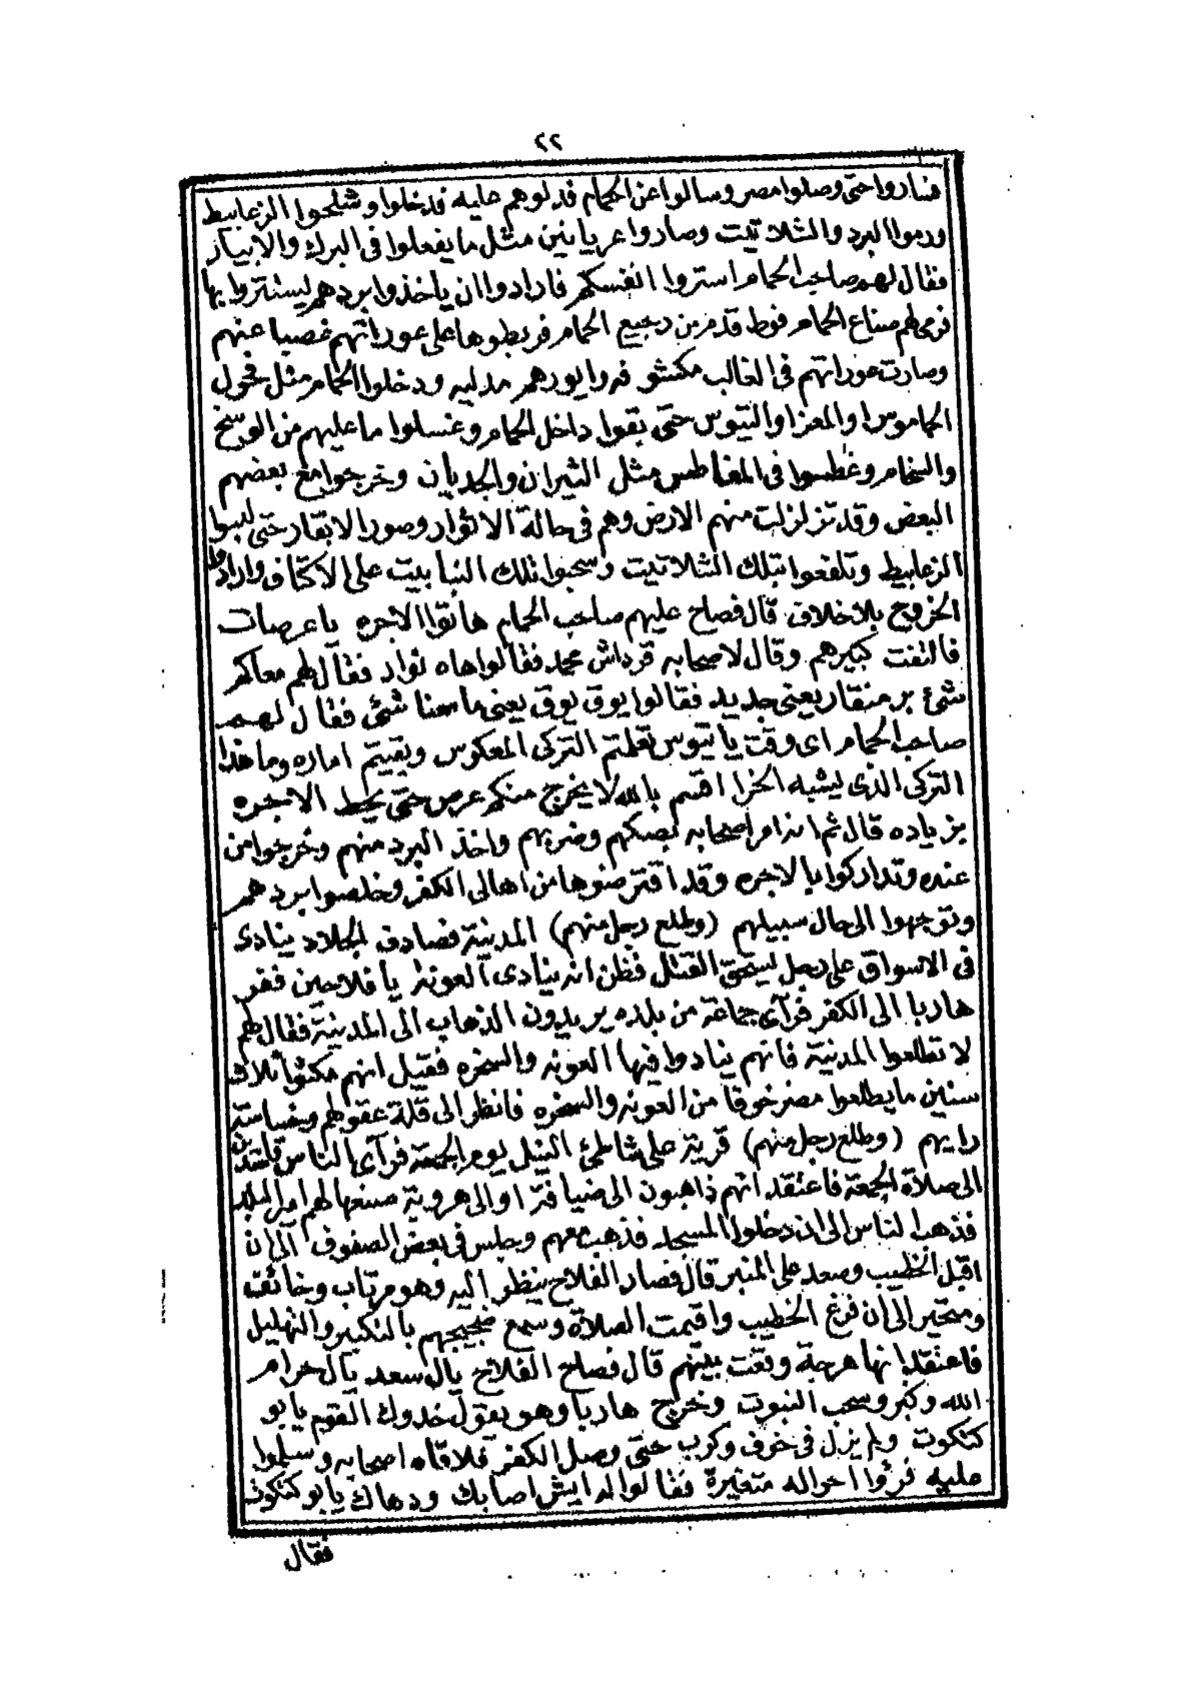 ٢٢
فساروا حتى وصلوا مصر وسالوا عن الحمام فدلوهم عليه فدخلوا وشلحوا الزعابيط
ورموا البرد والشلاتيت وصاروا عريانين مثل ما يفعلوا فى البرك والابيار
فقال لهم صاحب الحمام استروا انفسكم فارادوا ان ياخذوا بردهم ليستتروا بها
فرمى لهم صناع الحمام فوط قدم من دبجيع الحمام فربطوها على عوراتهم غصبا عنهم
وصارت عوراتهم فى الغالب مكشوفه وايورهم مدليه ودخلوا الحمام مثل فحول
الجاموس او المعز او التيوس حتى بقوا داخل الحمام وغسلوا ما عليهم من الوسخ
والسخام وغطسوا فى المغاطس مثل الثيران والجديان وخرجوا مع بعضهم
البعض وقد تزلزلت منهم الارض وهم فى حالة الاثوار وصور الابقار حتى لبسوا
الزعابيط وتلفعوا بتلك الشلاتيت وسحبوا تلك النبابيت على الاكتاف وارادوا
الخروج بلا خلاق قال فصاح عليهم صاحب الحمام هاتوا الاجره يا عرصات
فالتفت كبيرهم وقال لاصحابه قرداش محمد فقالوا هاه نوار فقال لهم معاكم
شئ بر منقار يعنى جديد فقالوا يوق يوق يعنى ما معنا شئ فقال لهم
صاحب الحمام اى وقت يا تيوس تعلمتم التركى المعكوس وبقيتم اماره وما هذا
التركى الذى يشبه الخرا اقسم بالله لا يخرج منكم عرص حتى يحط الاجره
بزياده قال ثم انه امر اصحابه بصكهم وضربهم واخذ البرد منهم وخرجوا من
عنده وتداركوا بالاجره وقد اقترضوها من اهالى الكفر وخلصوا بردهم
وتوجهوا الى حال سبيلهم (وطلع رجل منهم) المدينة فصادف الجلاد ينادى
فى الاسواق على رجل يستحق القتل فظن انه ينادى العونه يا فلاحين ففر
هاربا الى الكفر فرآى جماعة من بلده يريدون الذهاب الى المدينة فقال لهم
لا تطلعوا المدينة فانهم ينادوا فيها العونه والسخره فقيل انهم مكثوا ثلاث
سنين ما يطلعوا مصر خوفا من العونه والسخره فانظر الى قلة عقولهم وخساسة
رايهم (وطلع رجل منهم) قرية على شاطئ النيل يوم الجمعة فرآى الناس قاصدين
الى صلاة الجمعة فاعتقد انهم ذاهبون الى ضيافة او الى هروبة صنعها لهم امير البلد
فذهب الناس الى ان دخلوا المسجد فذهب معهم وجلس فى بعض الصفوف الى ان
اقبل الخطيب وصعد على المنبر قال فصار الفلاح ينظر اليه وهو مرتاب وخائف
ومتحير الى ان فرغ الخطيب واقيمت الصلاة وسمع ضجيجهم بالتكبير والتهليل
فاعتقد انها هرجة وقعت بينهم قال فصاح الفلاح يال سعد يال حرام
الله وكبر وسحب النبوت وخرج هاربا وهو يقول خدوك القوم يا بو
كتكوت ولم يزل فى خوف وكرب حتى وصل الكفر فلاقاه اصحابه وسلموا
عليه فرؤا احواله متغيرة فقالوا له ايش اصابك ودهاك يا بو كتكوت
فقال